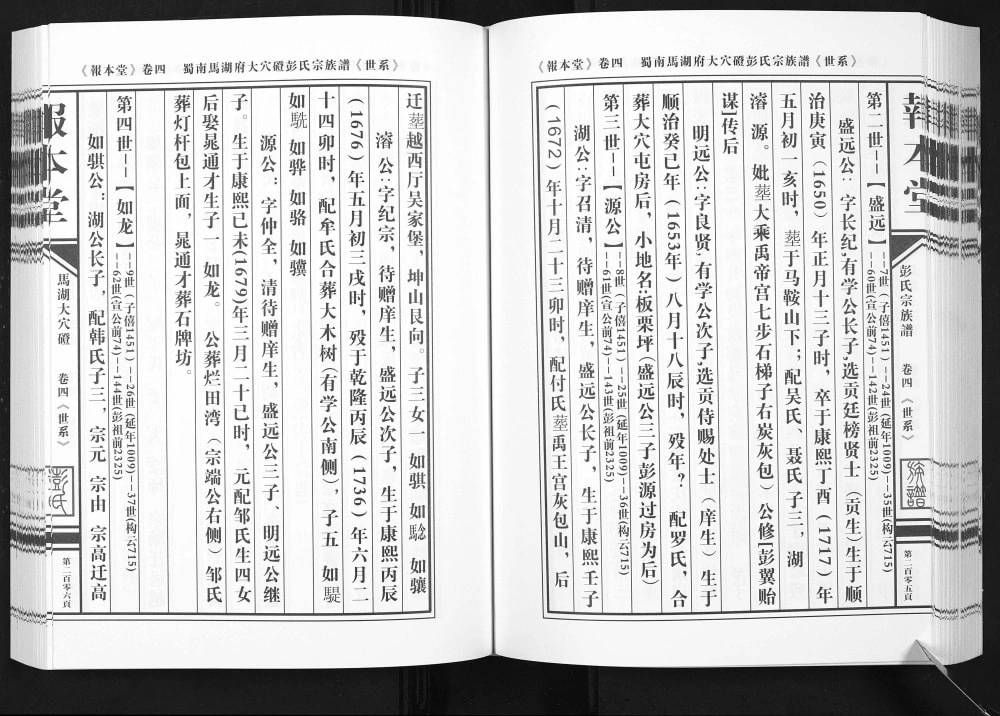 《報本堂》卷四 蜀南馬湖府大穴磴彭氏宗族譜《世系》
彭氏宗族譜 卷四《世系》
族譜
第二百零五頁
第二世——【盛远】
——7世（子僖1451）——24世（延年1009)——35世(构云715)
——60世(宣公前74)——142世(彭祖前2325)
盛远公：字长纪,有学公长子,选贡廷榜贤士（贡生）生于顺
治庚寅（1650）年正月十三子时，卒于康熙丁酉（1717）年
五月初一亥时，葬于马鞍山下；配吴氏、聂氏子三，湖
溶 源。妣葬大乘禹帝宫七步石梯子右炭灰包）公修[彭翼贻
谋]传后
明远公:字良贤,有学公次子,选贡侍赐处士（庠生）生于
顺治癸巳年（1653年）八月十八辰时，殁年？ 配罗氏，合
葬大穴屯房后，小地名:板栗坪(盛远公三子彭源过房为后)
第三世——【源公】
——8世（子僖1451）——25世（延年1009)——36世(构云715)
——61世(宣公前74)——143世(彭祖前2325)
湖公:字召清，待赠庠生，盛远公长子，生于康熙壬子
（1672）年十月二十三卯时，配付氏葬禹王宫灰包山，后
《報本堂》卷四 蜀南馬湖府大穴磴彭氏宗族譜《世系》
迁葬越西厅吴家堡，坤山艮向。子三女一如骐 如騐 如骧
溶公:字纪宗，待赠庠生，盛远公次子，生于康熙丙辰
(1676)年五月初三戌时，殁于乾隆丙辰（1736）年六月二
十四卯时，配牟氏合葬大木树(有学公南侧)，子五 如騠
如駪 如骅 如骆 如骥
源公：字仲全，清待赠庠生，盛远公三子、明远公继
子。生于康熙己未(1679)年三月二十己时，元配邹氏生四女
后娶晁通才生子一 如龙。 公葬烂田湾（宗端公右侧）邹氏
葬灯杆包上面，晁通才葬石牌坊。
第四世——【如龙】
——9世（子僖1451）——26世(延年1009)——37世(构云715)
——62世(宣公前74)——144世(彭祖前2325)
如骐公：湖公长子，配韩氏子三，宗元 宗由 宗高迁高
報本堂
馬湖大穴磴 卷四《世系》
彭氏
第二百零六頁